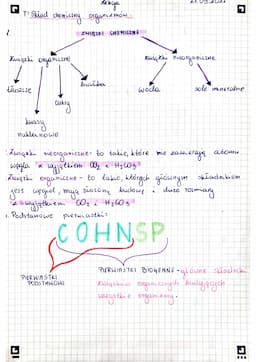 Lekcja
T: Skład chemiczny organizmów
1. ZWIĄZKI CHEMICZNE
Związki organiczne Związki nieorganiczne
tłuszcze cukry białka woda sole mineralne
kwasy
nukleinowe
Związki nieorganiczne - to takie, które nie zawierają atomu
węgla z wyjątkiem CO₂ i H₂CO₃
Związki organiczne - to takie, których głównym składnikiem
jest węgiel, mają złożoną budowę i duże rozmiary
z wyjątkiem CO₂ i H₂CO₃
Podstawowe pierwiastki:
COHNSP
PIERWIASTKI
PODSTAWOWE
PIERWIASTKI BIOGENNE - główne składniki
związków organicznych budujących
wszystkie organizmy.